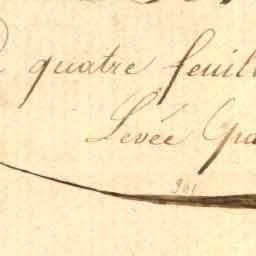 quatre feuil
Levée Gra
301